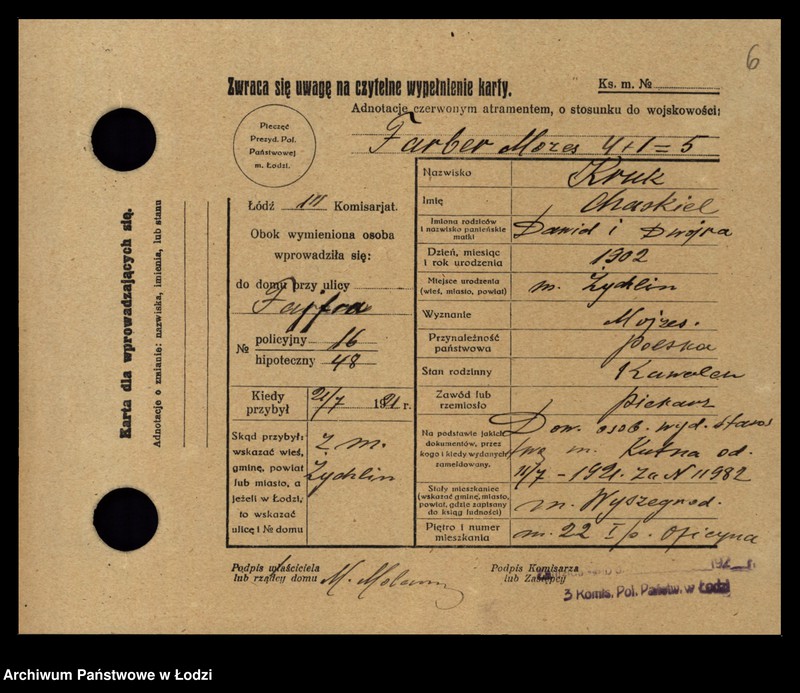 6
Zwraca się uwagę na czytelne wypełnienie karty.
Ks. m. №
Adnotacje czerwonym atramentem, o stosunku do wojskowości:
Farber Mozes 4+1=5
Pieczęć
Prezyd. Pol.
Państwowej
m. Łodzi.
Łódź III Komisarjat.
Obok wymieniona osoba
wprowadziła się:
do domu przy ulicy
Fajfra
№ policyjny 16
hipoteczny 48
Kiedy
przybył 21/7 1921 r.
Skąd przybył:
wskazać wieś,
gminę, powiat
lub miasto, a
jeżeli w Łodzi,
to wskazać
ulicę i № domu
z m.
Żychlin
Nazwisko Kruk
Imię Chaskiel
Imiona rodziców
i nazwisko panieńskie
matki
Dawid i Dwojra
Dzień, miesiąc
i rok urodzenia
1902
Miejsce urodzenia
(wieś, miasto, powiat)
m. Żychlin
Wyznanie Mojżes.
Przynależność
państwowa
polska
Stan rodzinny Kawaler
Zawód lub
rzemiosło
piekarz
Na podstawie jakich
dokumentów, przez
kogo i kiedy wydanych
zameldowany.
Dow. osob. wyd. staros
twa m. Kutna od.
11/7 - 1921. za N 11982
Stały mieszkaniec
(wskazać gminę, miasto,
powiat, gdzie zapisany
do ksiąg ludności)
m. Wyszegrod.
Piętro i numer
mieszkania
m. 22 I/p. oficyna
Podpis właściciela
lub rządcy domu
M.
Podpis Komisarza
lub Zastępcy
192 r.
3 Komis. Pol. Państw. w Łodzi
Karta dla wprowadzających się.
Adnotacje o zmianie: nazwiska, imienia, lub stanu
Archiwum Państwowe w Łodzi